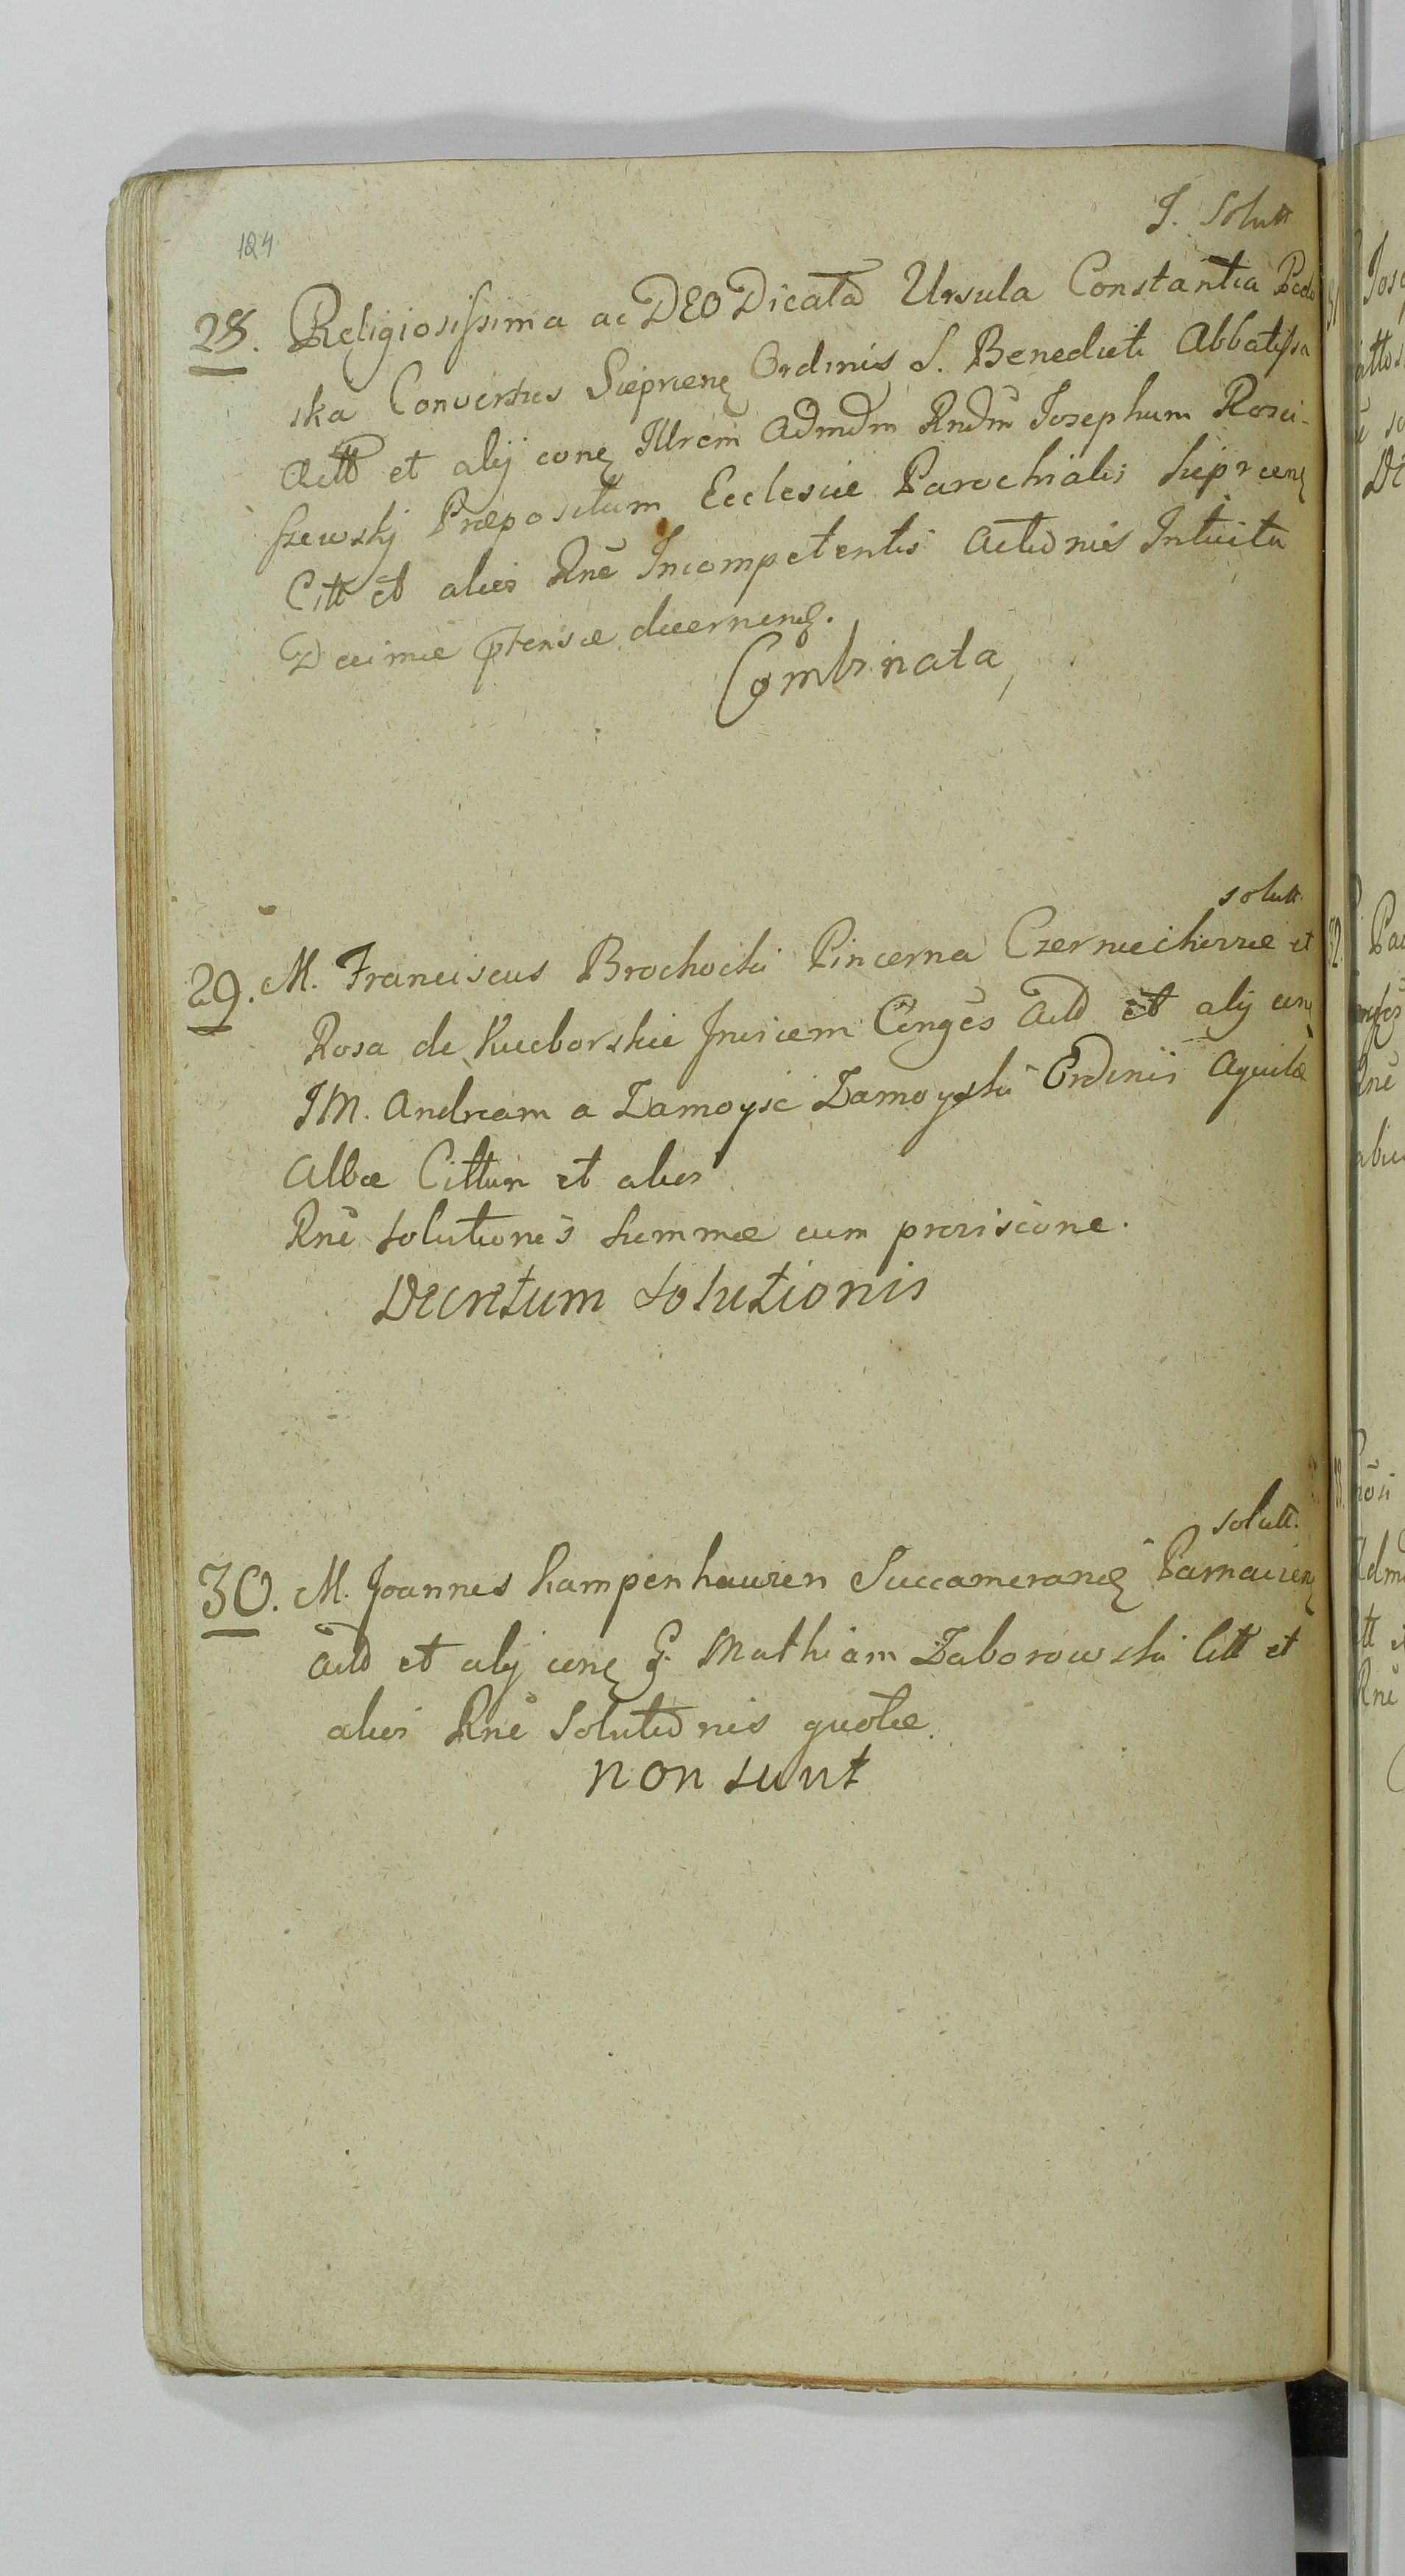 124
J. Solutt
28. Religiosissima ac DEO Dicata Ursula Constantia
ska Conventus Sieprcenẽ Ordinis S. Benedicti Abbatissa
Actt et alij conẽ Illrem Admdm Rndm Josephum Rosci-
szewskj Præpositum Ecclesiæ Parochialis Sieprcenẽ
Citt et alios Rnẽ Incompetentis Actionis Intuitu
Decimæ ptensæ decernendẽ.
Combinata
solutt.
29. M. Franciscus Brochocki Pincerna Czerniechoviæ et
Rosa de Kucborskie Invicem Conges Actt et alij con
JM. Andream a Zamoysc Zamoyski Ordinis Aquilæ
Albæ Cittum et alios
Rnẽ solutionis summæ cum provisione.
Decretum solutionis
solutt.
30. M. Joannes Kampenhauzen Succamerandẽ Parnaviens
Actt et alij conẽ G. Mathiam Zaborowski Citt et
alios Rnẽ Solutionis quotæ.
non sunt